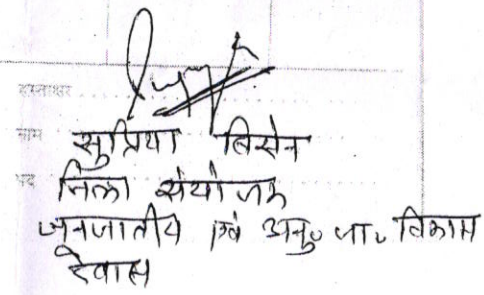 हस्ताक्षर
नाम सुप्रिया बिसेन
पद जिला संयोजक
जनजातीय एवं अनु॰ जा॰ विकास
देवास